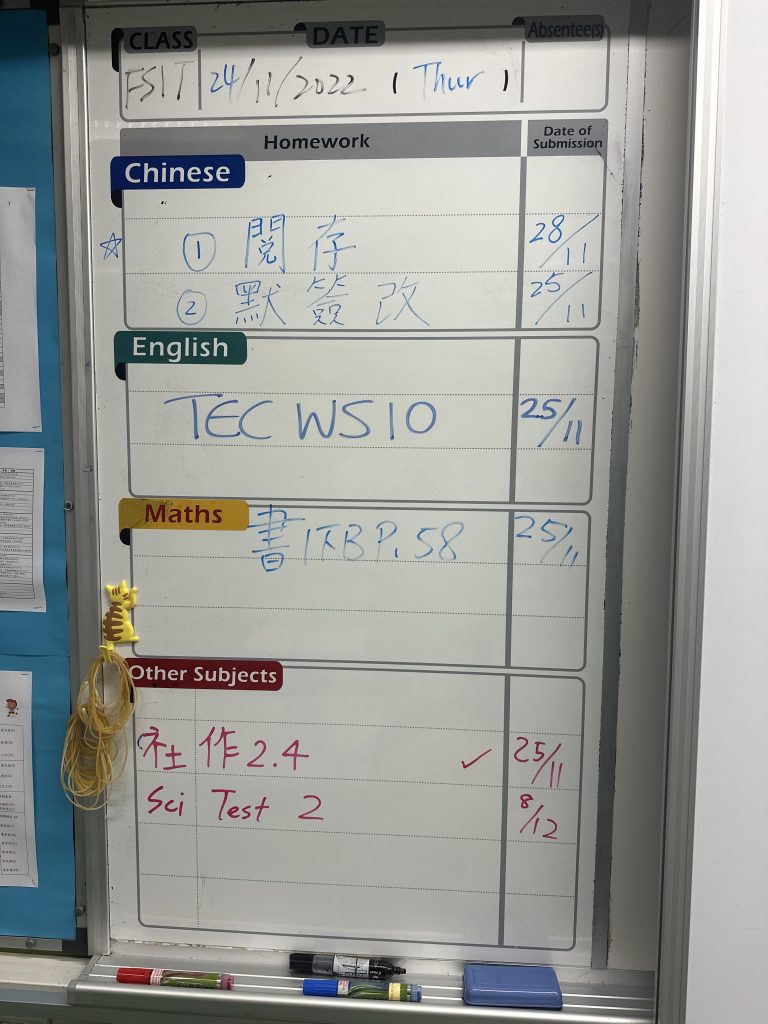 CLASS DATE Absentee(s)
24/11/2022 ( Thur )
Homework Date of Submission
Chinese
☆ ① 閱存 28/11
② 默簽改 25/11
English
TEC WS10 25/11
Maths
書 1下B P.58 25/11
Other Subjects
社作2.4 ✓ 25/11
Sci Test 2 8/12